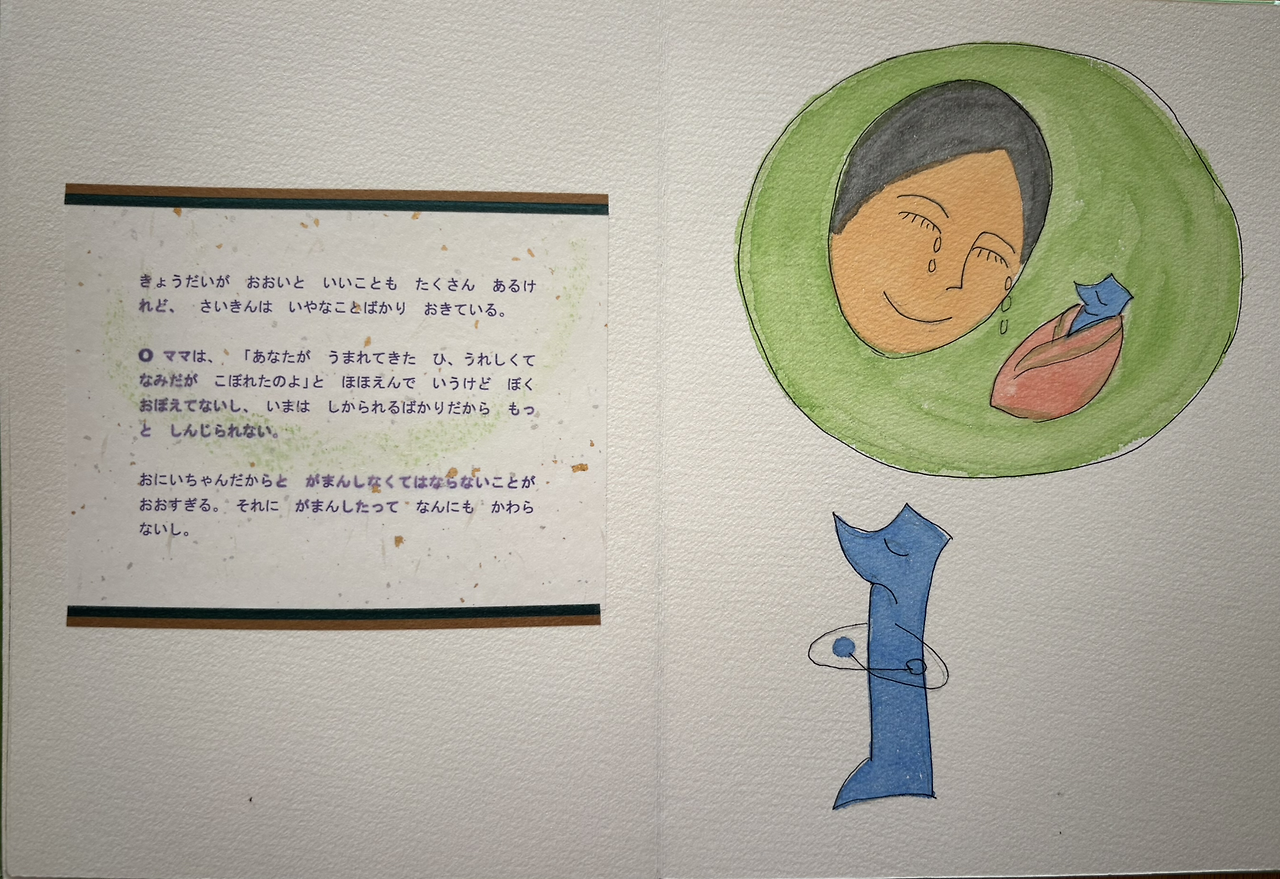 きょうだいが　おおいと　いいことも　たくさん　あるけ
れど、　さいきんは　いやなことばかり　おきている。
O ママは、　「あなたが　うまれてきた　ひ、うれしくて
なみだが　こぼれたのよ」と　ほほえんで　いうけど　ぼく
おぼえてないし、　いまは　しかられるばかりだから　もっ
と　しんじられない。
おにいちゃんだからと　がまんしなくてはならないことが
おおすぎる。　それに　がまんしたって　なんにも　かわら
ないし。